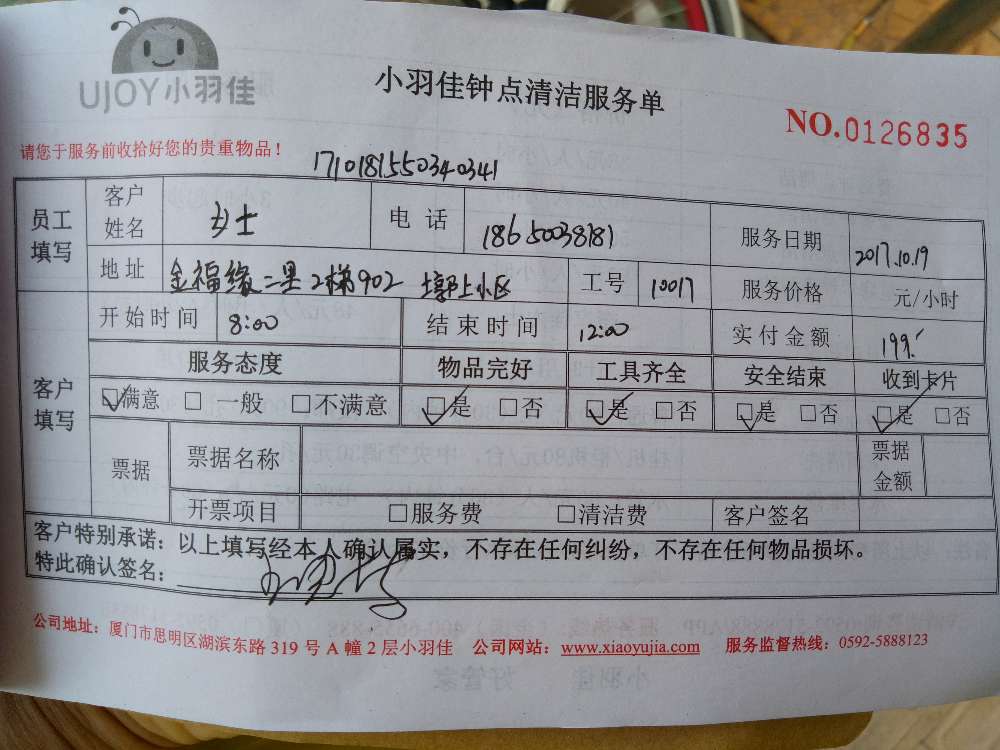 UJOY小羽佳
小羽佳钟点清洁服务单
NO.0126835
请您于服务前收拾好您的贵重物品！
171018155034 0341
员工填写 客户姓名 女士 电话 18650038181 服务日期 2017.10.19
地址 金福缘二里2梯902 埭上小区 工号 10017 服务价格 元/小时
客户填写 开始时间 8:00 结束时间 12:00 实付金额 199.
服务态度 物品完好 工具齐全 安全结束 收到卡片
☑满意 □一般 □不满意 ☑是 □否 ☑是 □否 ☑是 □否 ☑是 □否
票据 票据名称 票据金额
开票项目 □服务费 □清洁费 客户签名
客户特别承诺：以上填写经本人确认属实，不存在任何纠纷，不存在任何物品损坏。
特此确认签名：
公司地址：厦门市思明区湖滨东路 319 号 A 幢 2 层小羽佳 公司网站：www.xiaoyujia.com 服务监督热线：0592-5888123